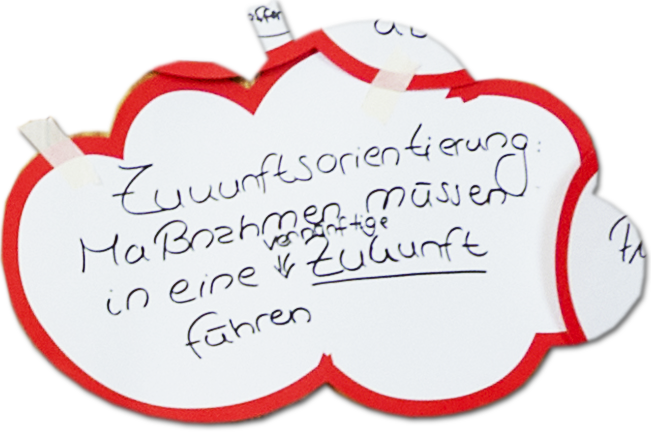 Zukunftsorientierung:
Maßnahmen müssen
in eine vernünftige Zukunft
führen